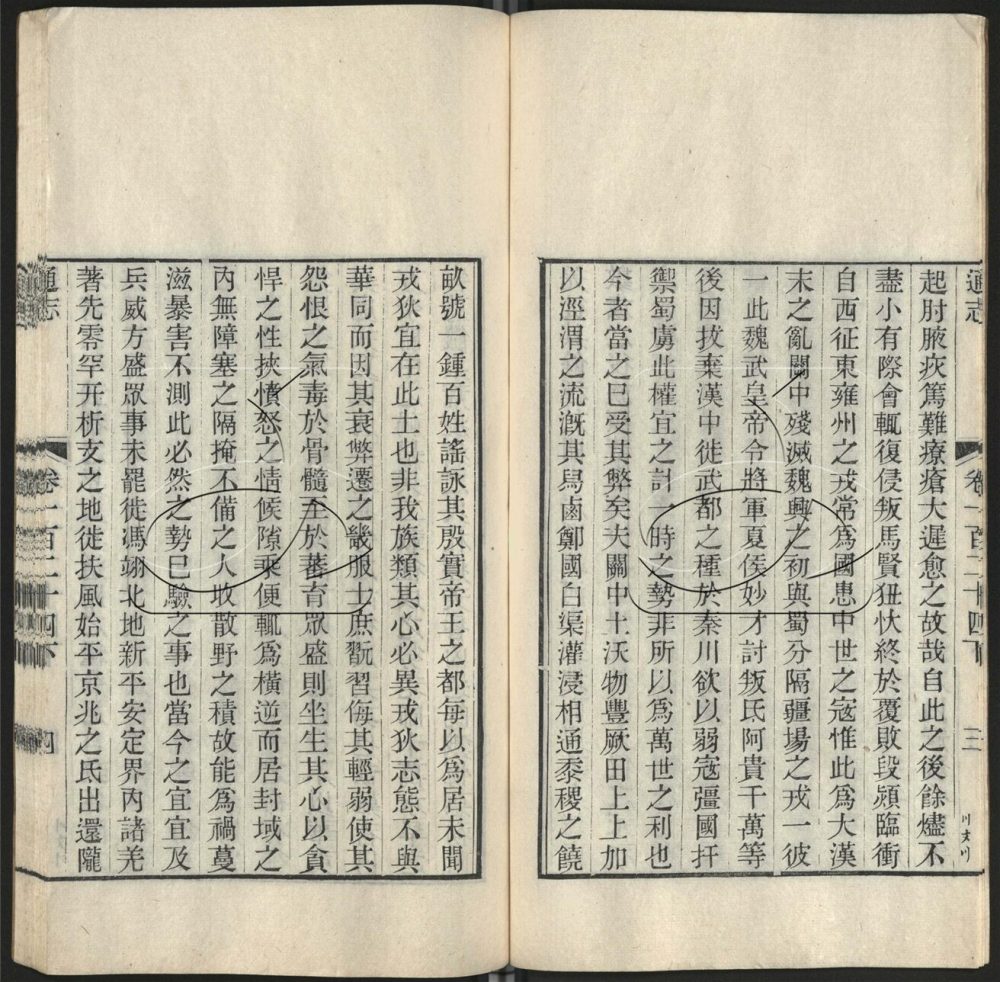 通志
卷一百二十四下
三
起肘腋疢篤難療瘡大遲愈之故哉自此之後餘燼不
盡小有際會輒復侵叛馬賢狃忕終於覆敗段熲臨衝
自西征東雍州之戎常爲國患中世之寇惟此爲大漢
末之亂關中殘滅魏興之初與蜀分隔疆埸之戎一彼
一此魏武皇帝令將軍夏侯妙才討叛氐阿貴千萬等
後因拔棄漢中徙武都之種於秦川欲以弱寇彊國扞
禦蜀虜此權宜之計一時之勢非所以爲萬世之利也
今者當之已受其弊矣夫關中土沃物豐厥田上上加
以涇渭之流漑其舄鹵鄭國白渠灌浸相通黍稷之饒
畝號一鍾百姓謠詠其殷實帝王之都每以爲居未聞
戎狄宜在此土也非我族類其心必異戎狄志態不與
華同而因其衰弊遷之畿服士庶翫習侮其輕弱使其
怨恨之氣毒於骨髓至於蕃育眾盛則坐生其心以貪
悍之性挾憤怒之情候隙乘便輒爲橫逆而居封域之
內無障塞之隔掩不備之人收散野之積故能爲禍蔓
滋暴害不測此必然之勢已驗之事也當今之宜宜及
兵威方盛眾事未罷徙馮翊北地新平安定界內諸羌
著先零罕幵析支之地徙扶風始平京兆之氐出還隴
通志
卷一百二十四下
四